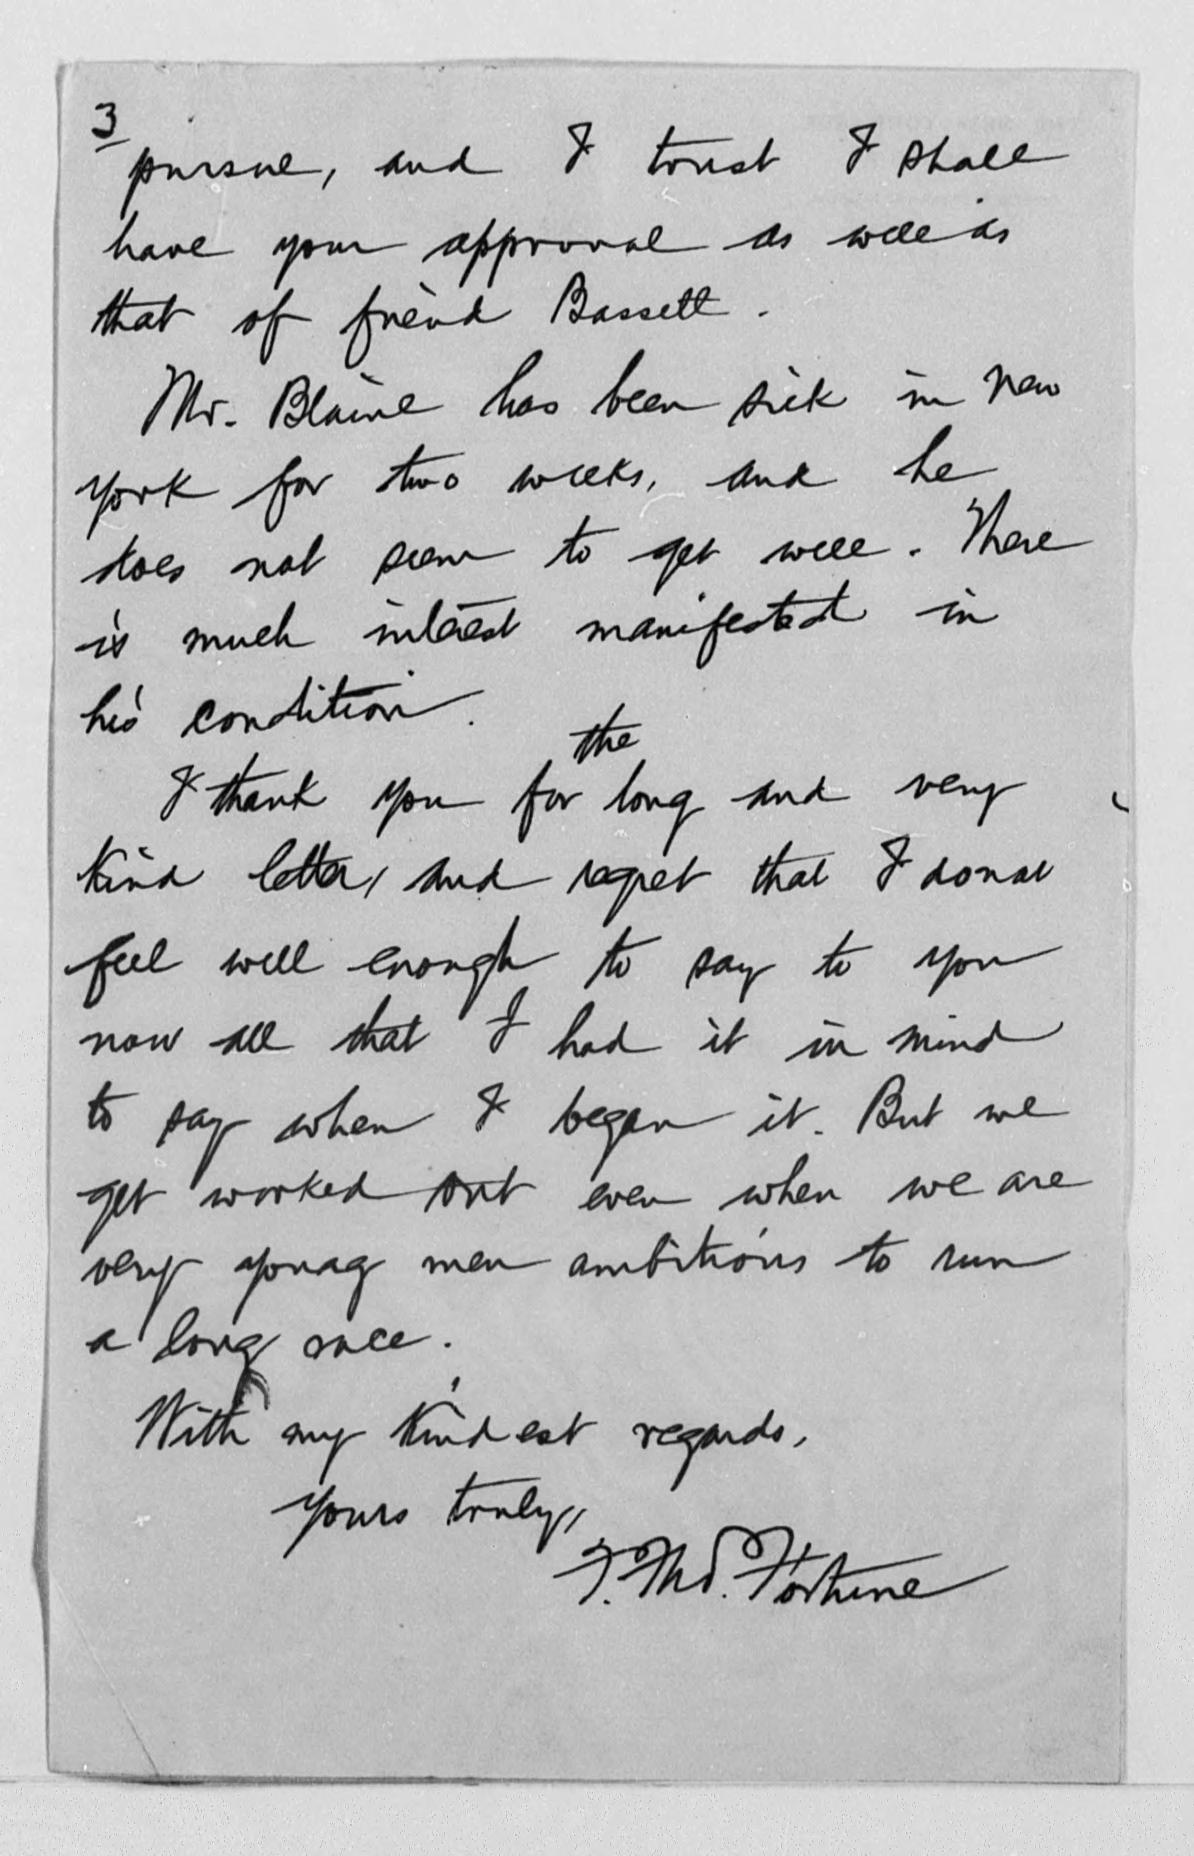 3
pursue, and I trust I shall
have your approval as well as
that of friend Bassett.
Mr. Blaine has been sick in New
York for two weeks, and he
does not seem to get well. There
is much interest manifested in
his condition.
the
I thank you for long and very
kind letter, and regret that I do not
feel well enough to say to you
now all that I had it in mind
to say when I began it. But we
get worked out even when we are
very young men ambitious to run
a long race.
With my kindest regards,
Yours truly,
T. Tho. Fortune